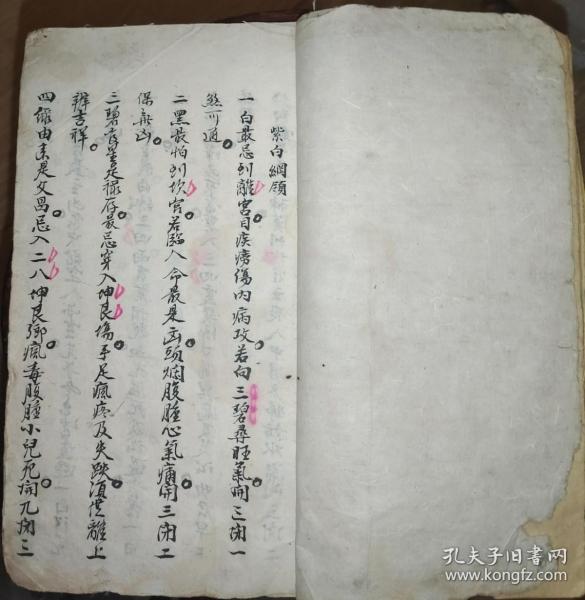 紫白綱領
一白最忌到離宮目疾癆傷內病攻若向三碧尋旺氣開三閉一
煞可通
二黑最怕到坎宮若臨八命最是凶頭爛腹腫心氣痛開三閉二
保無凶
三碧是祿存最忌穿入坤艮塲手足瘋疼及失跌須從離上
辨吉祥
四綠由來是文昌忌入二八坤艮鄉瘋毒腹腫小兒死開九閉三
孔夫子旧书网
www.kongfz.com